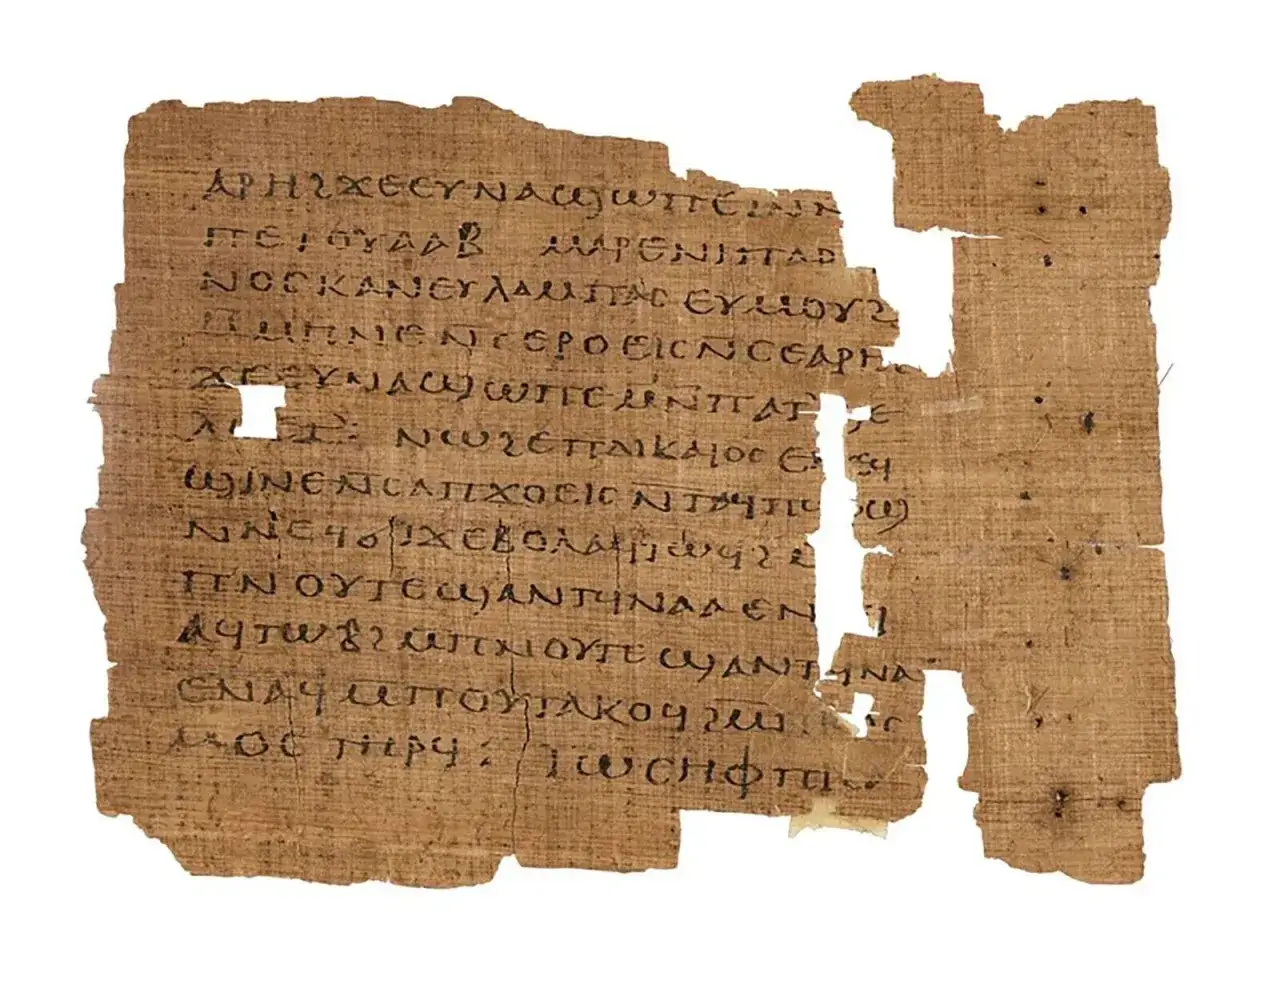 ⲁⲣⲏϩϫⲉⲉⲩⲛⲁϣⲱⲡⲉⲙⲛ
ⲡⲉⲧⲟⲩⲁⲁⲃ ⲙⲁⲣⲉⲛⲓⲡⲁⲣ
ⲛⲟⲥⲕⲁⲛⲉⲩⲗⲁⲙⲡⲁⲥ ⲉⲩⲙⲟⲩϩ
ⲛⲥⲉⲣⲟⲉⲓⲥⲛ̄ⲥⲉⲁⲣⲏ
ϫⲉⲉⲩⲛⲁϣⲱⲡⲉⲙⲛ̄ⲡⲁⲧ
ⲛⲱϩⲉⲡⲇⲓⲕⲁⲓⲟⲥ
ϣⲓⲛⲉⲛ̄ⲥⲁⲡϫⲟⲉⲓⲥ ⲛ̄ⲧⲁϥⲡ
ⲛ̄ⲛⲉϥϭⲓϫⲉⲃⲟⲗ
ⲡⲛⲟⲩⲧⲉϣⲁⲛⲧϥⲛⲁⲁⲉⲛ
ⲁϥⲧⲱⲃϩⲙ̄ⲡⲛⲟⲩⲧⲉϣⲁⲛⲧϥⲛⲁ
ⲉⲛⲁϥⲙ̄ⲡⲟⲩⲧⲁⲕⲟϥϩⲙ̄
ⲙⲟⲥ ⲧⲏⲣϥ: ⲓⲱⲥⲏⲫ